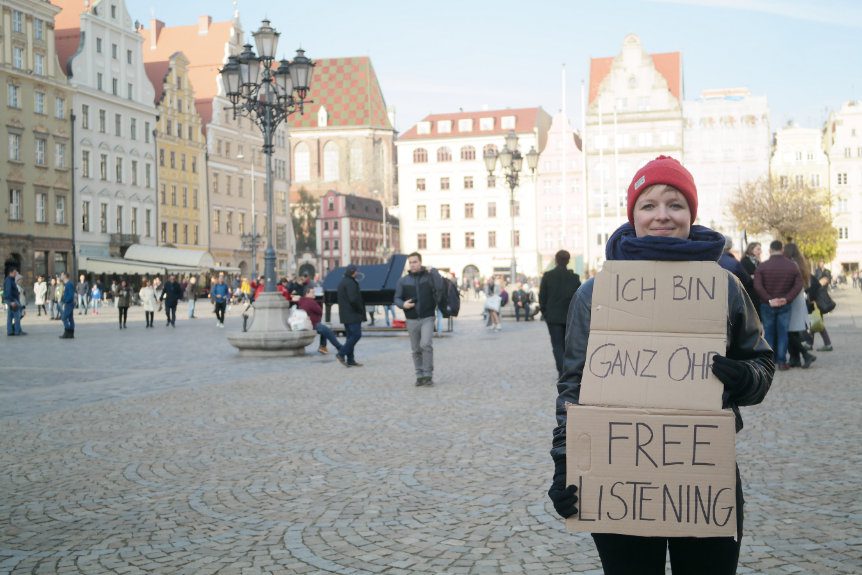 ICH BIN
GANZ OHR
FREE
LISTENING